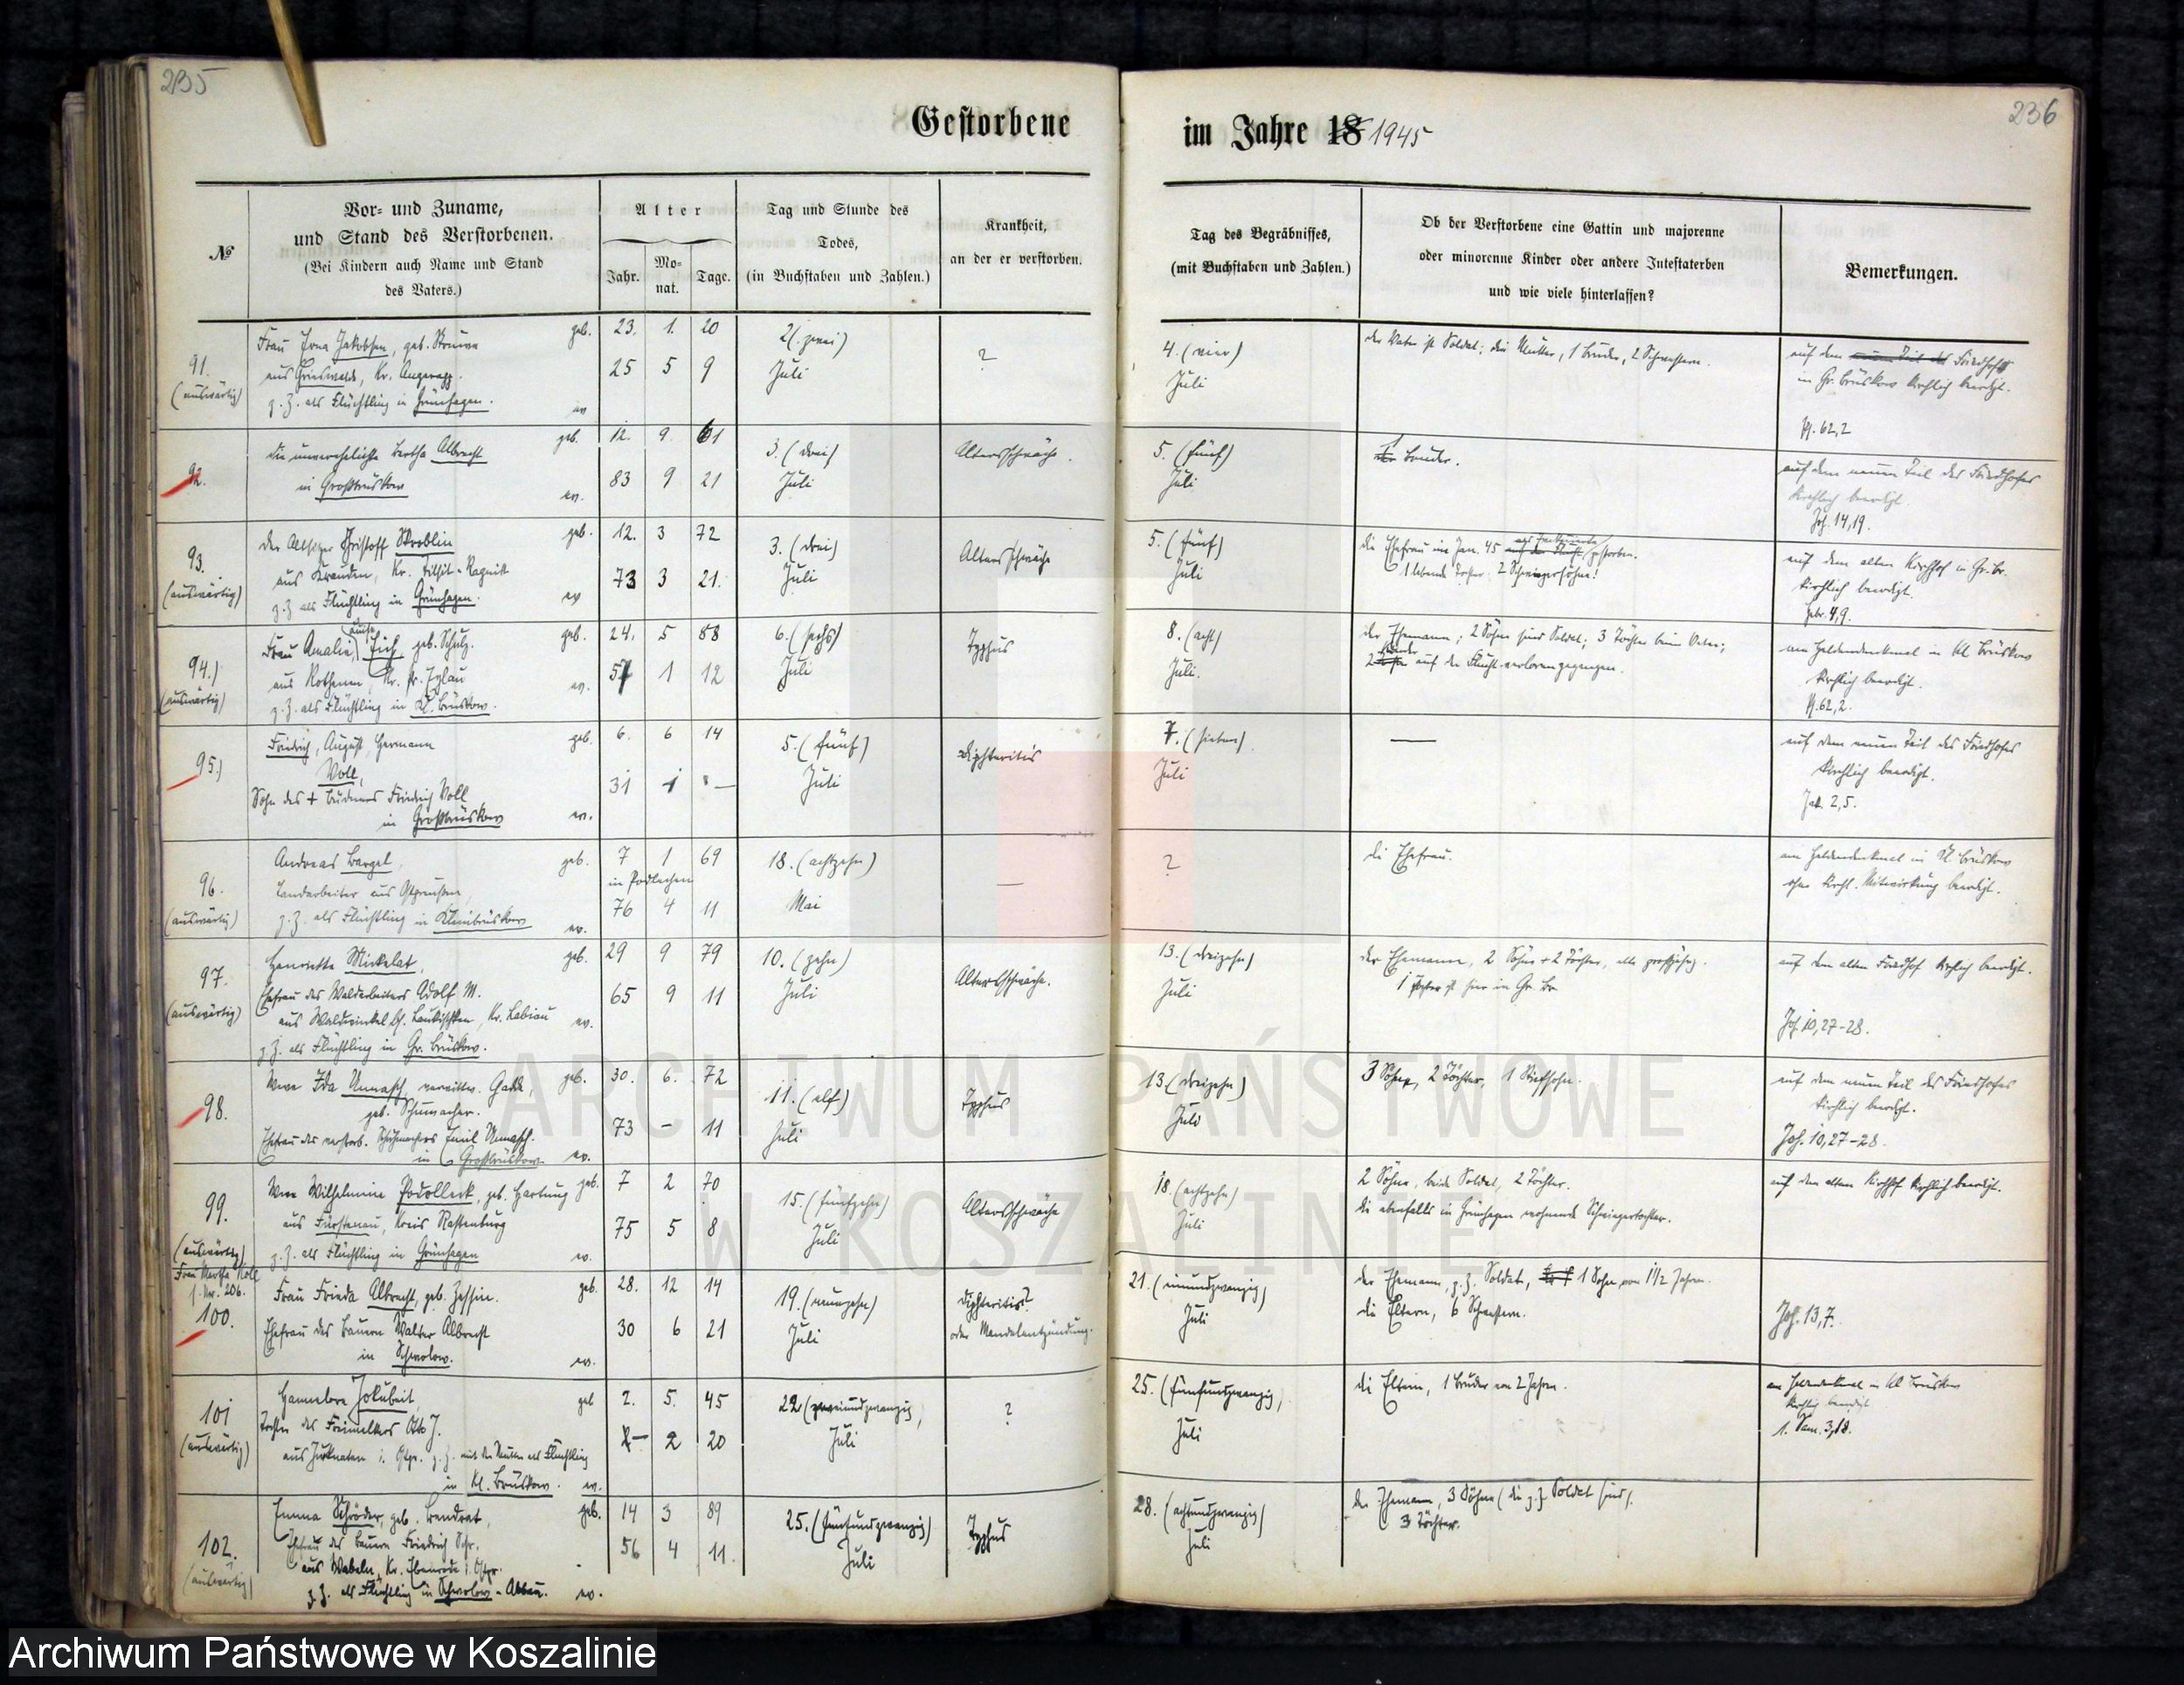 235
Gestorbene
№
Vor- und Zuname,
und Stand des Verstorbenen.
(Bei Kindern auch Name und Stand
des Vaters.)
Alter
Jahr.
Mo-
nat.
Tage.
Tag und Stunde des
Todes,
(in Buchstaben und Zahlen.)
Krankheit,
an der er verstorben.
91.
(auswärtig)
Frau Erna Jakobsen, geb.
aus Grieswalde, Kr. Angerapp.
z. Z. als Flüchtling in Grünhagen.
geb. 23. 1. 20
25 5 9
2 (zwei)
Juli
?
92.
die unverehelichte Bertha Albrecht
in Großbrüskow
geb. 12. 9. 61
ev. 83 9 21
3. (drei)
Juli
Altersschwäche.
93.
(auswärtig)
der Altsitzer Christoff Skroblin
aus Krauden, Kr. Tilsit-Ragnit
z. Z. als Flüchtling in Grünhagen.
geb. 12. 3 72
ev 73 3 21.
3. (drei)
Juli
Altersschwäche
94.)
(auswärtig)
Frau Amalie, Luise Eich geb. Schulz.
aus Rothenen, Kr. Pr. Eylau
z. Z. als Flüchtling in Kl. Brüskow.
geb. 24. 5 88
ev. 57 1 12
6. (sechs)
Juli
Typhus
95.)
Friedrich, August, Hermann
Voll,
Sohn des + Büdners Friedrich Voll
in Großbrüskow
geb. 6. 6 14
ev. 31 1 —
5. (fünf)
Juli
Diphteritis
96.
(auswärtig)
Andreas Bargel,
Landarbeiter aus Ostpreußen,
z. Z. als Flüchtling in Kleinbrüskow
geb. 7 1 69
in Podlechen
ev. 76 4 11
18. (achtzehn)
Mai
—
97.
(auswärtig)
Henriette Mickelat,
Ehefrau des Waldarbeiters Adolf M.
aus Waldwinkel, Kr. Labiau
z. Z. als Flüchtling in Gr. Brüskow.
geb. 29 9 79
ev. 65 9 11
10. (zehn)
Juli
Altersschwäche.
98.
Wwe Ida Unnasch, verwitw. Gadde,
geb. Schumacher.
Ehefrau des verstorb. Schuhmachers Emil Unnasch.
in Großbrüskow
geb. 30. 6. 72
ev. 73 – 11
11. (elf)
Juli
Typhus
99.
(auswärtig)
Wwe Wilhelmine Podolleck, geb. Hartung
aus Fürstenau, Kreis Rastenburg
z. Z. als Flüchtling in Grünhagen
geb. 7 2 70
ev. 75 5 8
15. (fünfzehn)
Juli
Altersschwäche
Frau Martha Koll
s. Nr. 206.
100.
Frau Frieda Albrecht, geb. Zessin.
Ehefrau des Bauern Walter Albrecht
in Schwolow.
geb. 28. 12 14
ev. 30 6 21
19. (neunzehn)
Juli
Diphteritis?
oder Mandelentzündung.
101
(auswärtig)
Hannelore Jokubeit,
Tochter des Freimelkers Otto J.
aus i. Ostpr. z. Z. mit der Mutter als Flüchtling
in Kl. Brüskow.
geb 2. 5. 45
ev. — 2 20
22 (zweiundzwanzig)
Juli
?
102.
(auswärtig)
Emma Schröder, geb. Bendrat,
Ehefrau des Bauern Friedrich Schr.
aus Wabeln, Kr. Ebenrode i. Ostpr.
z. Z. als Flüchtling in Schwolow-Abbau.
geb. 14 3 89
ev. 56 4 11.
25. (fünfundzwanzig)
Juli
Typhus
236
im Jahre 18 1945
Tag des Begräbnisses,
(mit Buchstaben und Zahlen.)
Ob der Verstorbene eine Gattin und majorenne
oder minorenne Kinder oder andere Intestaterben
und wie viele hinterlassen?
Bemerkungen.
4. (vier)
Juli
der Vater ist Soldat; die Mutter, 1 Bruder, 2 Schwestern.
auf dem neuen Teil des Friedhofs
in Gr. Brüskow kirchlich beerdigt.
Ps. 62,2
5. (fünf)
Juli
1 Bruder.
auf dem neuen Teil des Friedhofes
kirchlich beerdigt.
Joh. 14,19.
5. (fünf)
Juli
die Ehefrau im Jan. 45 auf der Flucht gestorben.
1 lebende Tochter. 2 Schwiegersöhne!
auf dem alten Kirchhof in Gr. Br.
kirchlich beerdigt.
Hebr. 4,9.
8. (acht)
Juli.
der Ehemann; 2 Söhne sind Soldat; 3 Töchter beim Vater;
2 Kinder auf der Flucht verloren gegangen.
am Heldendenkmal in Kl Brüskow
kirchlich beerdigt.
Ps. 62,2.
7. (sieben)
Juli
—
auf dem neuen Teil des Friedhofes
kirchlich beerdigt.
Jak. 2,5.
?
die Ehefrau.
am Heldendenkmal in Kl Brüskow
ohne kirchl. Mitwirkung beerdigt.
13. (dreizehn)
Juli
der Ehemann, 2 Söhne + 2 Töchter, alle großjährig.
1 Tochter ist hier in Gr. Br.
auf dem alten Friedhof kirchlich beerdigt.
Joh. 10,27-28.
13. (dreizehn)
Juli
3 Söhne, 2 Töchter, 1 Stiefsohn.
auf dem neuen Teil des Friedhofes
kirchlich beerdigt.
Joh. 10,27-28.
18. (achtzehn)
Juli
2 Söhne, beide Soldat, 2 Töchter.
die ebenfalls in Grünhagen wohnende Schwiegertochter.
auf dem alten Kirchhof kirchlich beerdigt.
21. (einundzwanzig)
Juli
der Ehemann, z. Z. Soldat, 1 Sohn von 1 1/2 Jahren.
die Eltern, 6 Schwestern.
Joh. 13,7.
25. (fünfundzwanzig)
Juli
die Eltern, 1 Bruder von 2 Jahren.
am Heldendenkmal in Kl Brüskow
kirchlich beerdigt
1. Sam. 3,18.
28. (achtundzwanzig)
Juli
der Ehemann, 3 Söhne (die z. Z. Soldat sind).
3 Töchter.
ARCHIWUM PAŃSTWOWE
W KOSZALINIE
Archiwum Państwowe w Koszalinie